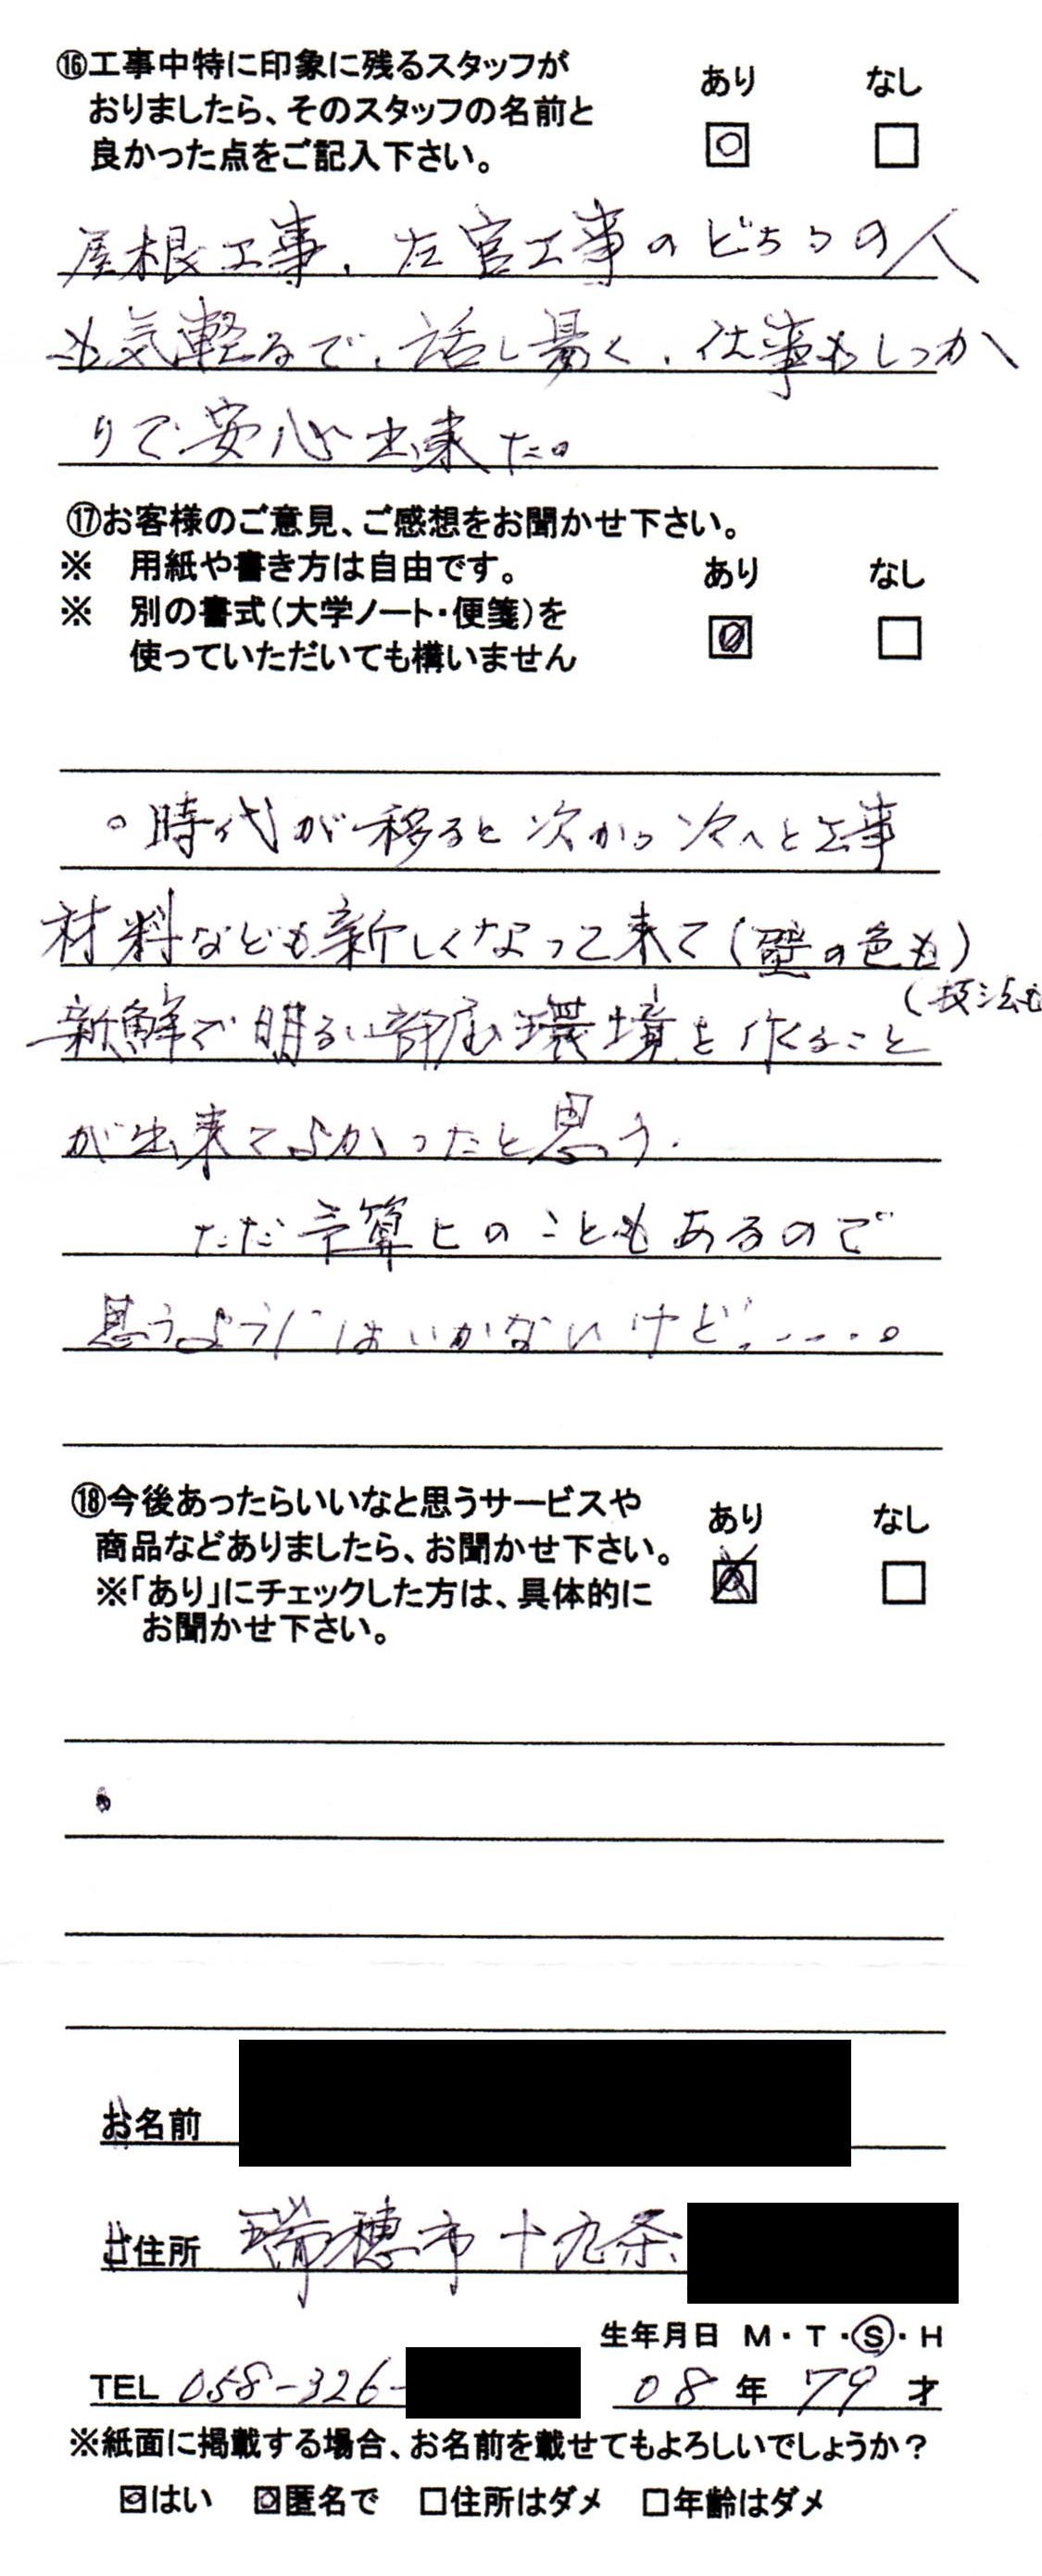 ⑯工事中特に印象に残るスタッフが
おりましたら、そのスタッフの名前と
良かった点をご記入下さい。
あり なし
屋根工事、左官工事のどちらの人
も気軽るで、話し易く、仕事もしっか
りで安心出来た。
⑰お客様のご意見、ご感想をお聞かせ下さい。
※ 用紙や書き方は自由です。
※ 別の書式(大学ノート・便箋)を
使っていただいても構いません
あり なし
○時代が移ると次から次へと工事
材料なども新しくなって来て(壁の色も)
(技法も
新鮮で明るい部屋環境を作ること
が出来てよかったと思う.
ただ予算上のこともあるので
思うようにはいかないけど.....。
⑱今後あったらいいなと思うサービスや
商品などありましたら、お聞かせ下さい。
※「あり」にチェックした方は、具体的に
お聞かせ下さい。
あり なし
お名前
ご住所 瑞穂市十九条
生年月日 M・T・S・H
TEL 058-326- 08年 79才
※紙面に掲載する場合、お名前を載せてもよろしいでしょうか?
はい 匿名で 住所はダメ 年齢はダメ